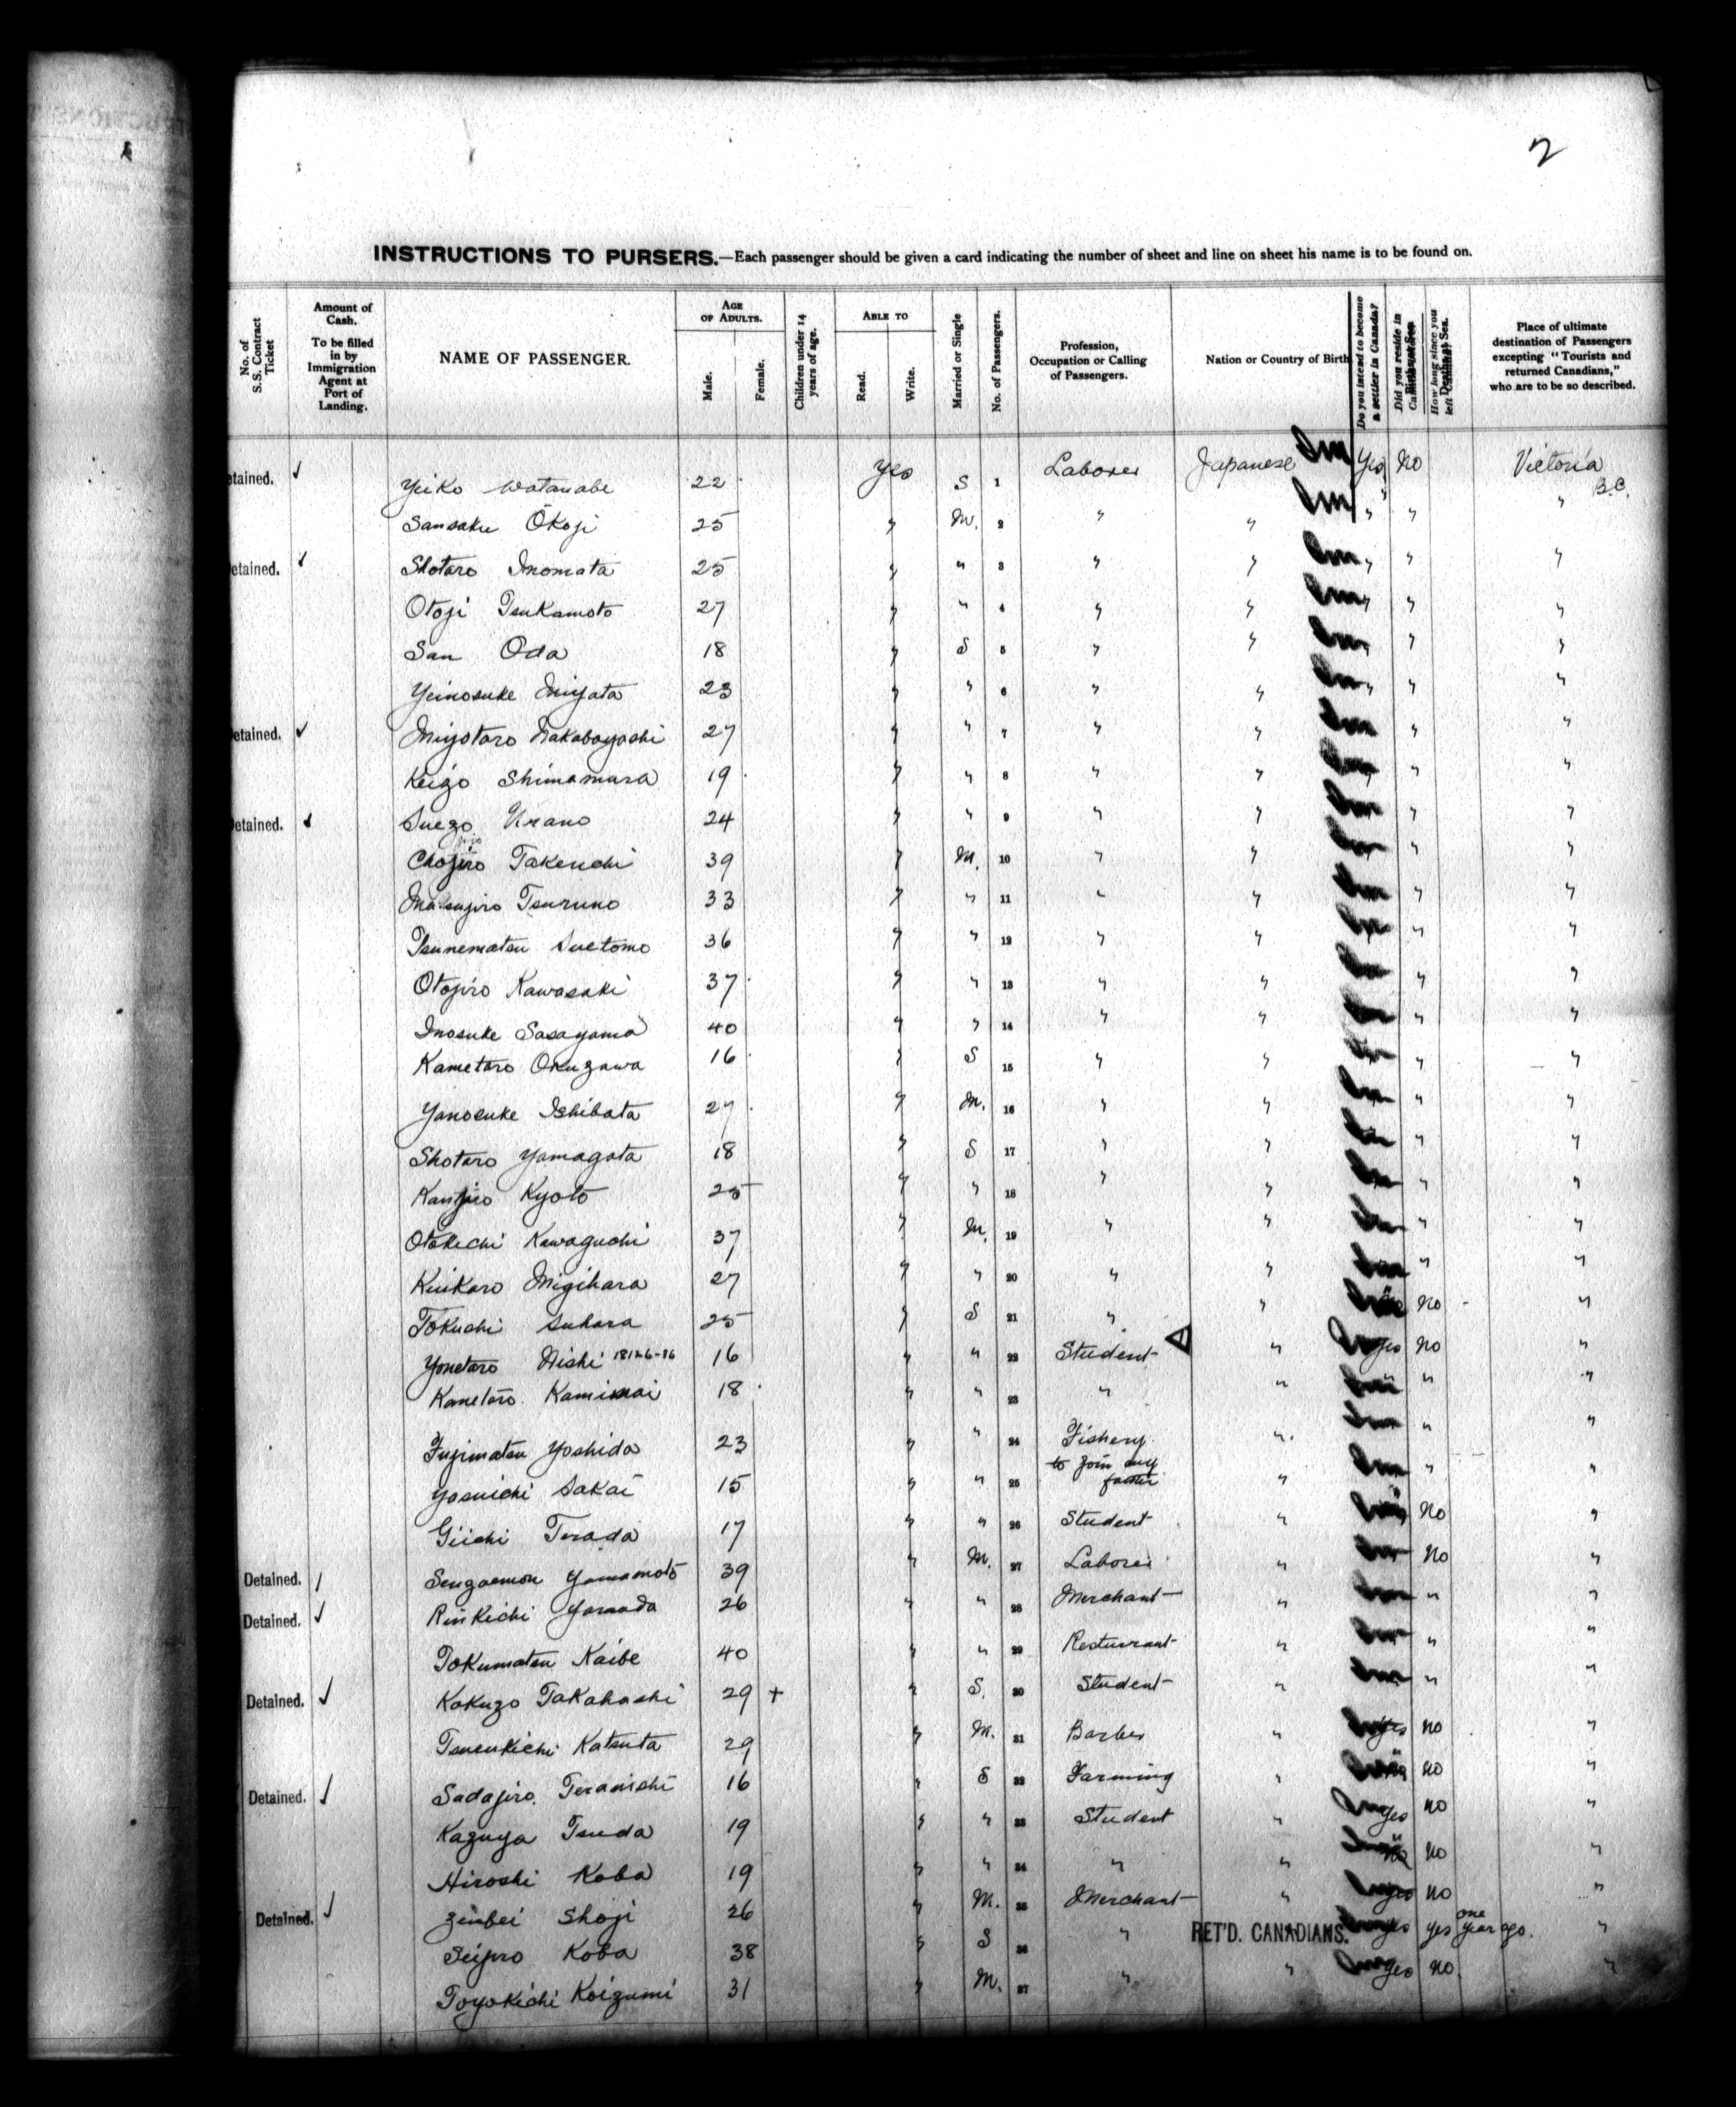 2
INSTRUCTIONS TO PURSERS.—Each passenger should be given a card indicating the number of sheet and line on sheet his name is to be found on.
No. of S.S. Contract Ticket
Amount of Cash. To be filled in by Immigration Agent at Port of Landing.
NAME OF PASSENGER.
AGE OF ADULTS. Male. Female.
Children under 14 years of age.
ABLE TO Read. Write.
Married or Single
No. of Passengers.
Profession, Occupation or Calling of Passengers.
Nation or Country of Birth
Do you intend to become a settler in Canada?
Did you reside in
How long since you left
Place of ultimate destination of Passengers excepting "Tourists and returned Canadians," who are to be so described.
etained. ✓ Yeiko Watanabe 22 Yes S 1 Laborer Japanese Yes No Victoria B.C.
Sansaku Ōkoji 25 " M. 2 " " " " "
etained. ✓ Shotaro Inomata 25 " " 3 " " " " "
Otoji Tsukamoto 27 " " 4 " " " " "
San Oda 18 " S 5 " " " "
Yeinosuke Miyata 23 " " 6 " " " " "
etained. ✓ Miyotaro Nakabayashi 27 " " 7 " " " "
Keigo Shimamura 19 " " 8 " " " "
Detained. ✓ Suezo Urano 24 " " 9 " " " "
Chojiro Takeuchi 39 " M. 10 " " " "
Masujiro Tsuruno 33 " " 11 " " " "
Tsunematsu Suetomo 36 " " 12 " " " "
Otojiro Kawasaki 37 " " 13 " " " "
Inosuke Sasayama 40 " " 14 " " " "
Kametaro Okuzawa 16 " S 15 " " " "
Yanosuke Ishibata 27 " M. 16 " " " "
Shotaro Yamagata 18 " S 17 " " " "
Kanjiro Kyoto 25 " " 18 " " " "
Otokichi Kawaguchi 37 " M. 19 " " " "
Migihara 27 " " 20 " " " "
Tokuchi Suhara 25 " S 21 " " No "
Yonetaro Nishi 18126-36 16 " " 22 Student " Yes No "
Kanetaro Kamimai 18 " " 23 " " " "
Fujimatsu Yoshida 23 " " 24 Fishery " " "
Yasuichi Sakai 15 " " 25 to join my father " " "
Giichi Terada 17 " " 26 Student " No "
Detained. ✓ Sengaemon Yamamoto 39 " M. 27 Laborer " No "
Detained. ✓ Rinkichi Yamada 26 " " 28 Merchant " " "
Tokumatsu Kaibe 40 " " 29 Resturrant " " "
Detained. ✓ Kakuzo Takahashi 29 + " S. 30 Student " " "
Tsunekichi Katsuta 29 " M. 31 Barber " Yes No "
Detained. ✓ Sadajiro Teranishi 16 " S 32 Farming " No "
Kazuya Tsuda 19 " " 33 Student " Yes No "
Hiroshi Koba 19 " " 34 " " No No "
Detained. ✓ Zinbei Shoji 26 " M. 35 Merchant " Yes No "
Seijiro Koba 38 " S 36 " RET'D. CANADIANS. Yes Yes one year ago. "
Toyokichi Koizumi 31 " M. 37 " " Yes No. "